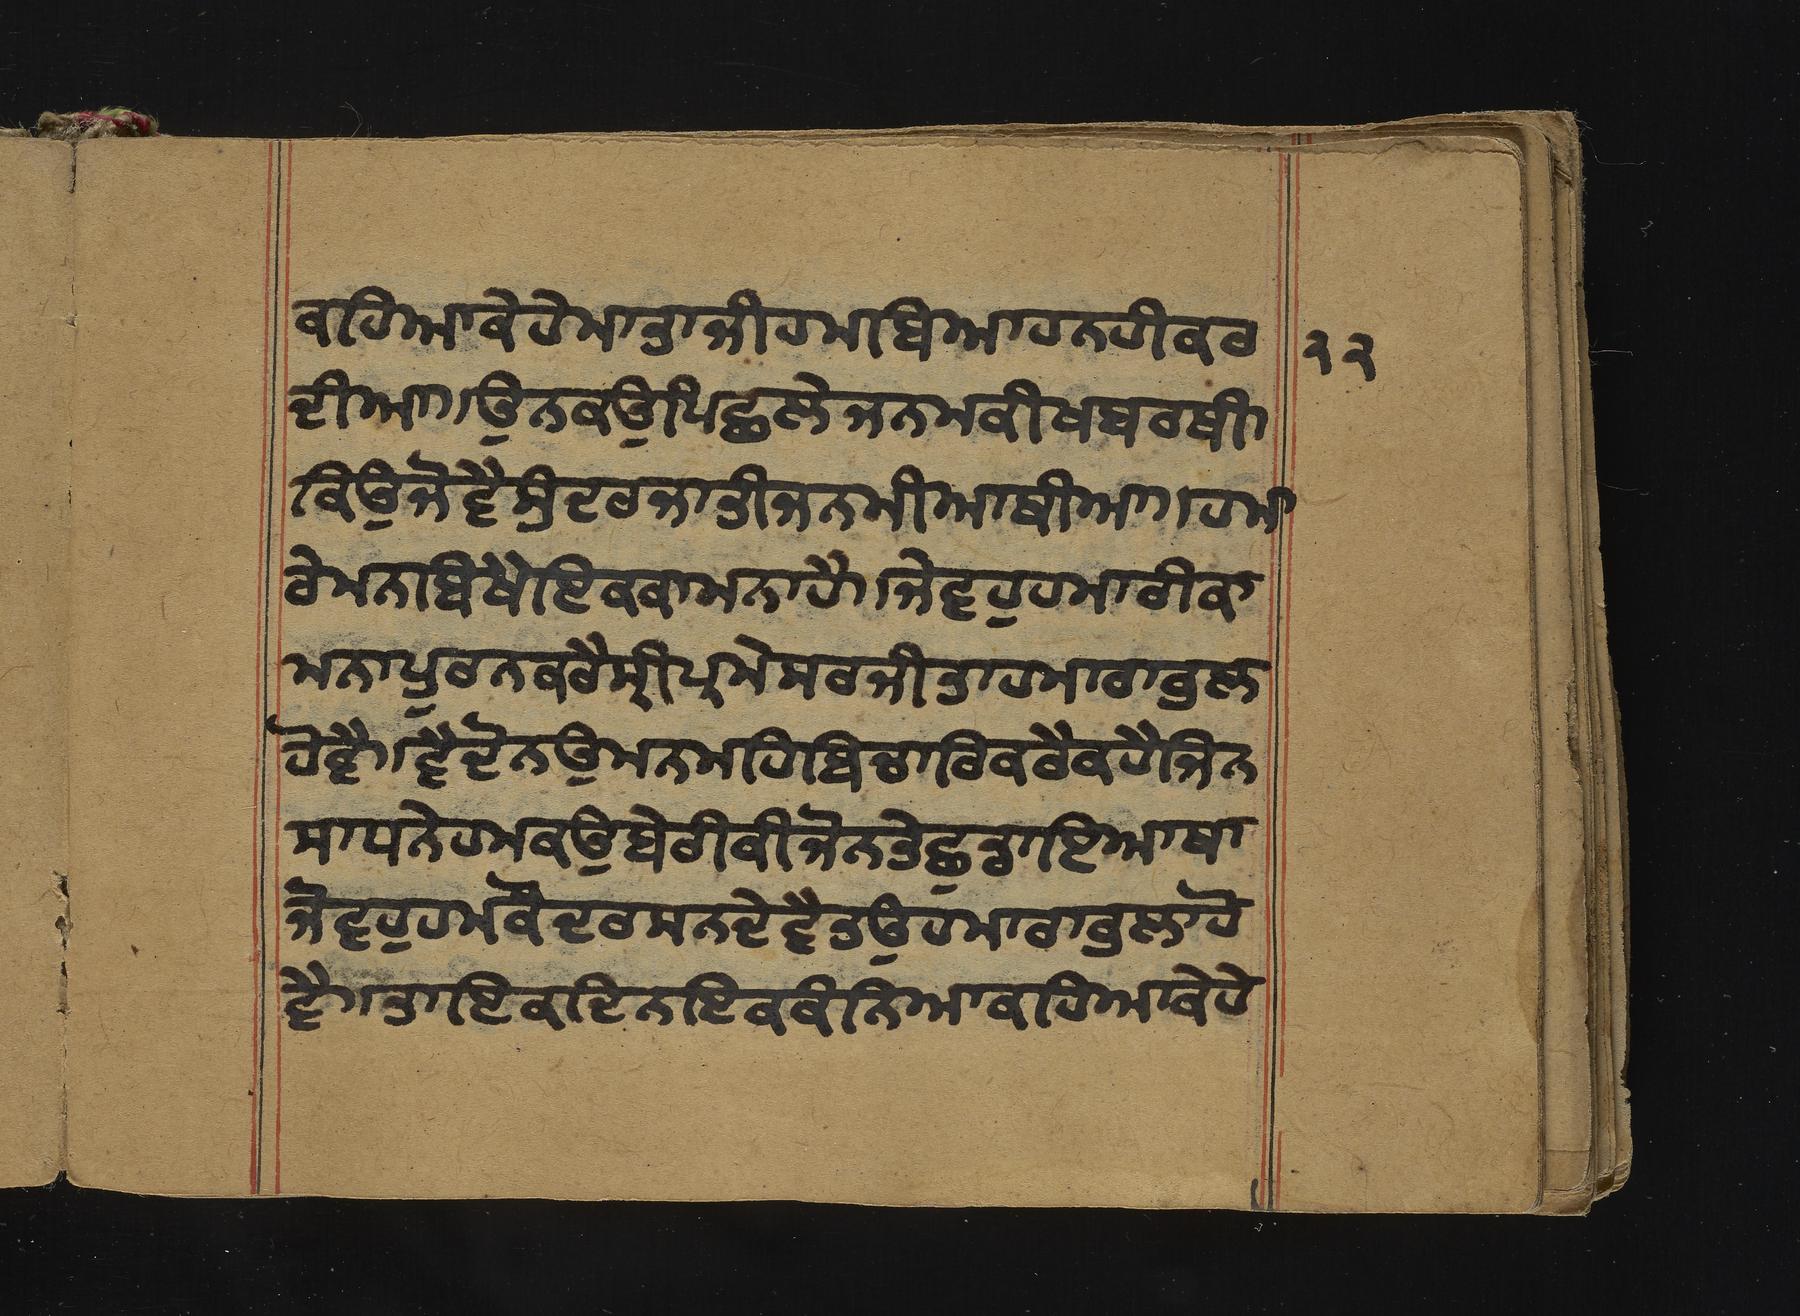 ਕਹਿਆਕੇਹੇਮਾਤਾਜੀਹਮਬਿਆਹਨਹੀਕਰ
੨੨
ਦੀਆ।।ਉਨਕਉਪਿਛਲੇਜਨਮਕੀਖਬਰਥੀ।
ਕਿਉਜੋਵੈਸੁਿਦਰਜਾਤੀਜਨਮੀਆਥੀਆ।।ਹਮਾ
ਰੇਮਨਬਿਖੈਇਕਕਾਮਨਾਹੈ।।ਜੇਵਹੁਹਮਾਰੀਕਾ
ਮਨਾਪੁਰਨਕਰੈਸ੍ਰੀਪ੍ਰਮੇਸਰਜੀਤਾਹਮਾਰਾਭੁਲ
ਹੋਵੈ।।ਵੈਦੋਨਉਮਨਮਹਿਬਿਚਾਰਿਕਰੈਕਹੈਜਿਨ
ਸਾਧਨੇਹਮਕਉਬੇਰੀਕੀਜੋਨਤੇਛੁਡਾਇਆਥਾ
ਜੋਵਹੁਹਮਕੌਦਰਸਨਦੇਵੈਤਉਹਮਾਰਾਭੁਲਾਹੋ
ਵੈ।।ਤਾਇਕਦਿਨਇਕਕੰਨਿਆਕਹਿਆਕੇਹੇ